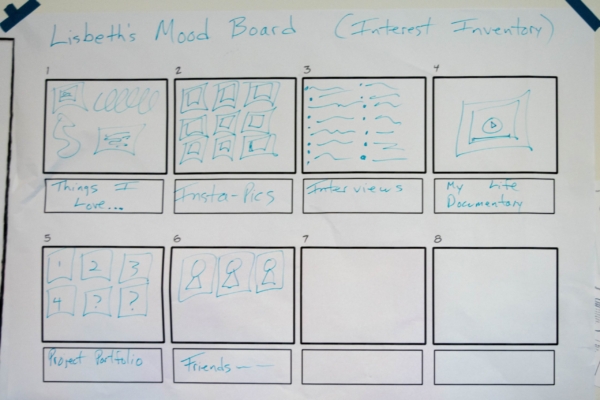 Lisbeth's Mood Board (Interest Inventory)
1 2 3 4
Things I
Love...
Insta-Pics
Interviews
My Life
Documentary
5 6 7 8
1 2 3
4 ? ?
Project Portfolio
Friends